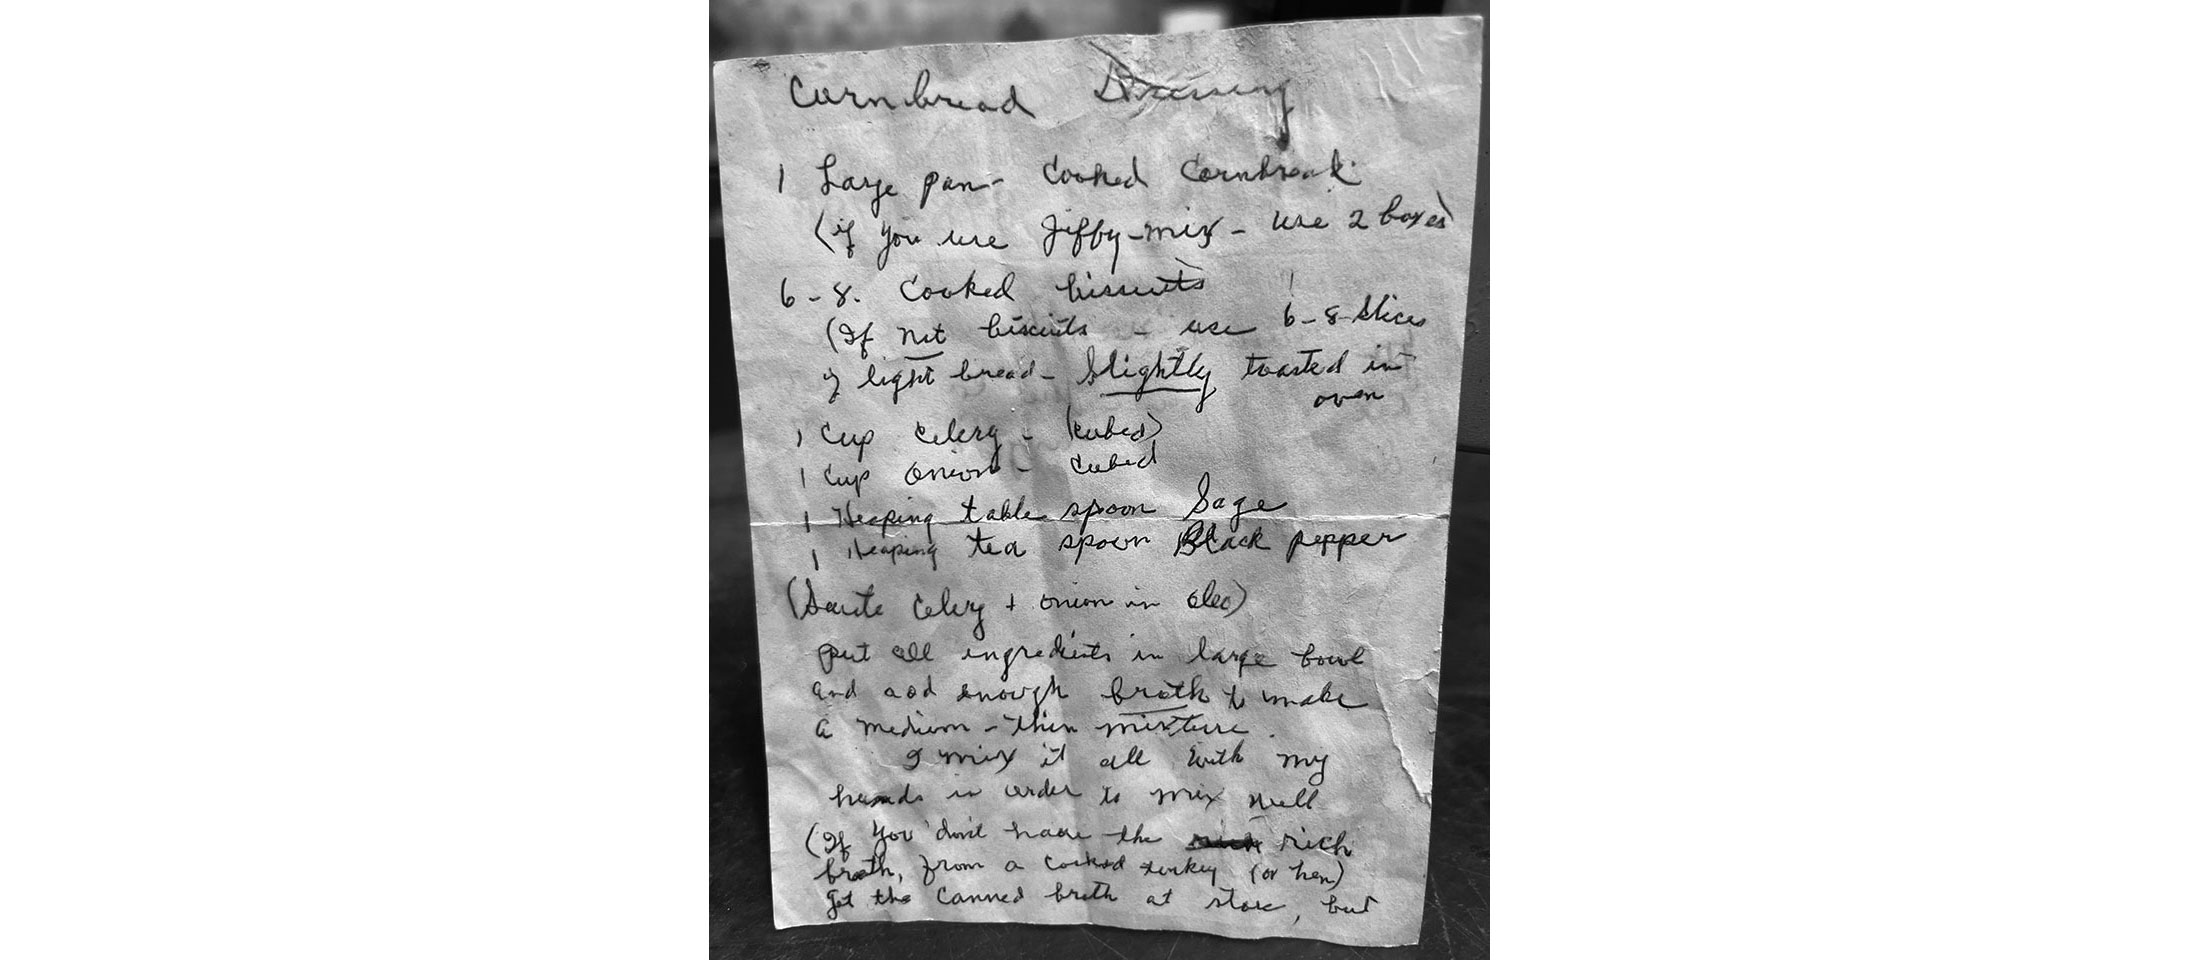 Cornbread Dressing
1 Large pan - Cooked Cornbread.
(if you use Jiffy-mix - use 2 boxes)
6-8. Cooked biscuits
(If not biscuits - use 6-8 slices
of light bread - Slightly toasted in
oven
1 Cup Celery - (cubed)
1 Cup onion - cubed
1 Heaping table spoon Sage
1 Heaping tea spoon Black pepper
(Saute Celery + onion in oleo)
put all ingredients in large bowl
and add enough broth to make
a medium-thin mixture.
I mix it all with my
hands in order to mix well
(If you don't have the rich
broth, from a cooked turkey (or hen)
get the canned broth at store, but